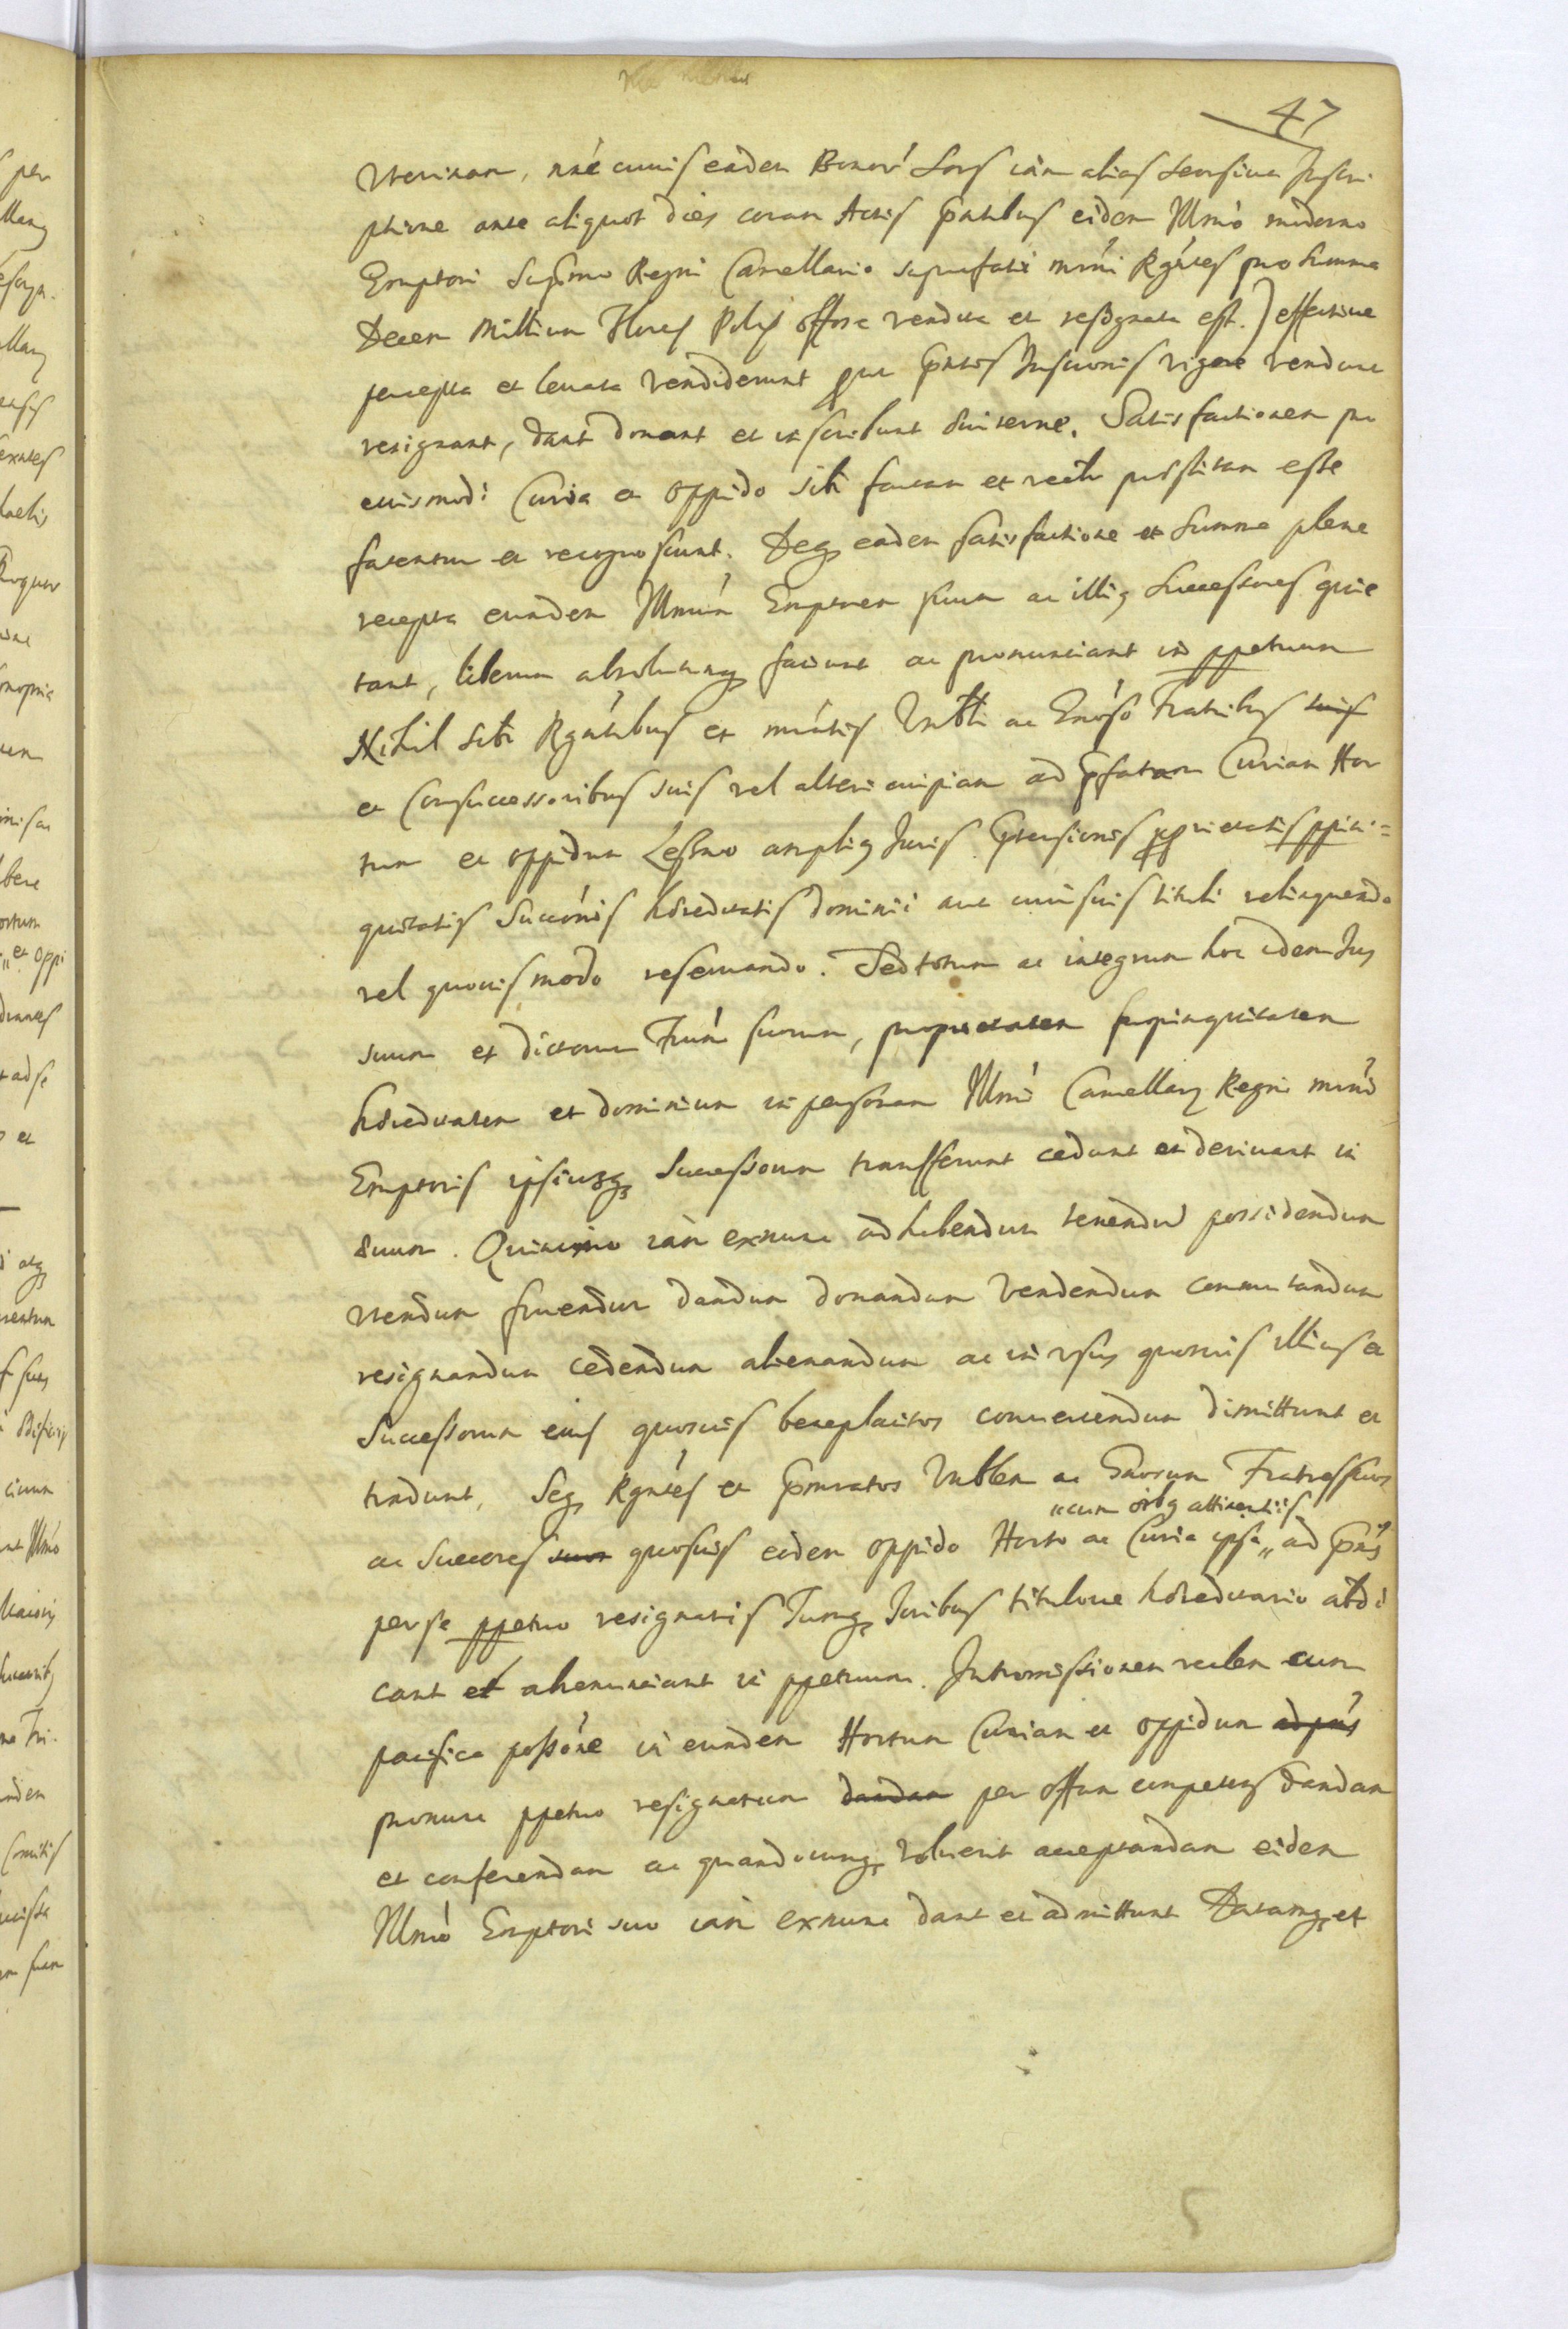 47
Uterinam, nae cuius eadem Bonor' Sors iam alias seorsiva Inscri
ptione ante aliquot dies coram Actis pntibus eidem Illmo moderno
Emptori Supmo Regni Cancellario suprafati mni Rgntes pro summa
Decem Millium Floren Polis offose vendita et resignata est.) effective
percepta et levata Vendiderunt prout pntis Inscrionis vigore vendunt
resignant, dant donant et inscribunt Suiterne. Satisfactionem pro
euismodi Curia et oppido sibi factam et realr praestitam esse
fatentur et recognoscunt. Deq eadem satisfactione et summa plene
recepta eundem Illmum Emptorem suum ac illiq Successores quie
tant, liberum absolutumq faciunt ac pronunciant in ppetuum
Nihil sibi Rgntibus et mnatis Urbli ac Gnoso Fratribus suis
et Consuccessoribus suis vel alteri cuipiam ad pfatam Curiam Hor
tum et oppidum Leszno ampliq Juris Ptensionis pprietatis ppin=
quitatis Succonis hdreditatis dominii aut cuiusuis tituli relinquendo
vel quouis modo reseruando. Sed totum ac integrum hoc idem Jus
suum et dictorum Frum suorum, proprietatem propinquitatem
hdreditatem et dominium in personam Illmi Cancellarij Regni mni
Emptoris ipsiusq Successorum transferunt cedunt et deriuant in
suum. Quinimo iam exnunc ad habendum tenendum possidendum
utendum fruendum dandum donandum Vendendum commutandum
resignandum cedendum alienandum ac in usus quosuis illius et
Successorum eius quosuis beneplacitos conuertendum dimittunt et
tradunt, Seq Rgntes et pmratos Urblem ac Gnosum Fratres suos
"cum oibq attinentiis
ac Succores suos quosuis eidem oppido Horto ac Curia ipsa " ad pns
per se ppetuo resignatis Jureq Juribus tituloue hdreditario abdi
cant et abrenunciant in ppetuum. Intromissionem realem cum
pacifica possone in eundem Hortum Curiam et oppidum ad pns
pronunc ppetuo resignatum dandam per offim competens dandam
et conferendam ac quandocunq voluerit acceptandam eidem
Illmo Emptori suo iam exnunc dant et admittunt Datamq et